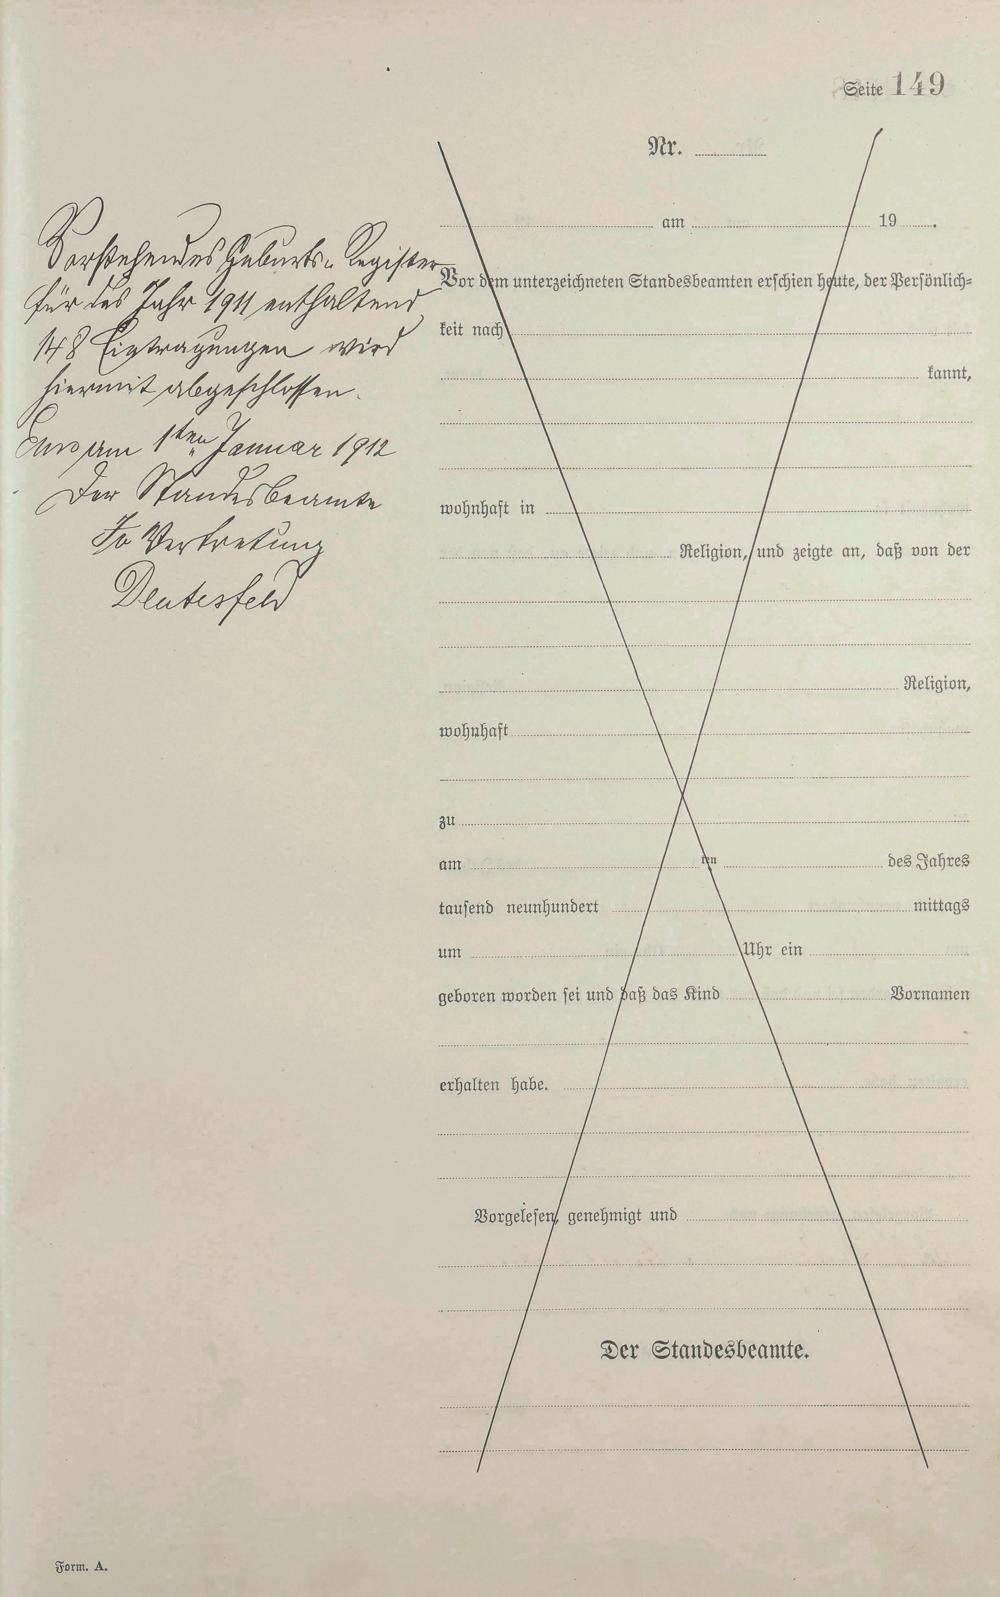 Seite 149
Vorstehendes Geburts-Register
für das Jahr 1911 enthaltend
148 Eintragungen wird
hiermit abgeschlossen.
am 1ten Januar 1912
Der Standesbeamte
In Vertretung
Deutesfeld
Nr.
am 19 .
Vor dem unterzeichneten Standesbeamten erschien heute, der Persönlich-
keit nach
kannt,
wohnhaft in
Religion, und zeigte an, daß von der
Religion,
wohnhaft
zu
am ten des Jahres
tausend neunhundert mittags
um Uhr ein
geboren worden sei und daß das Kind Vornamen
erhalten habe.
Vorgelesen, genehmigt und
Der Standesbeamte.
Form. A.